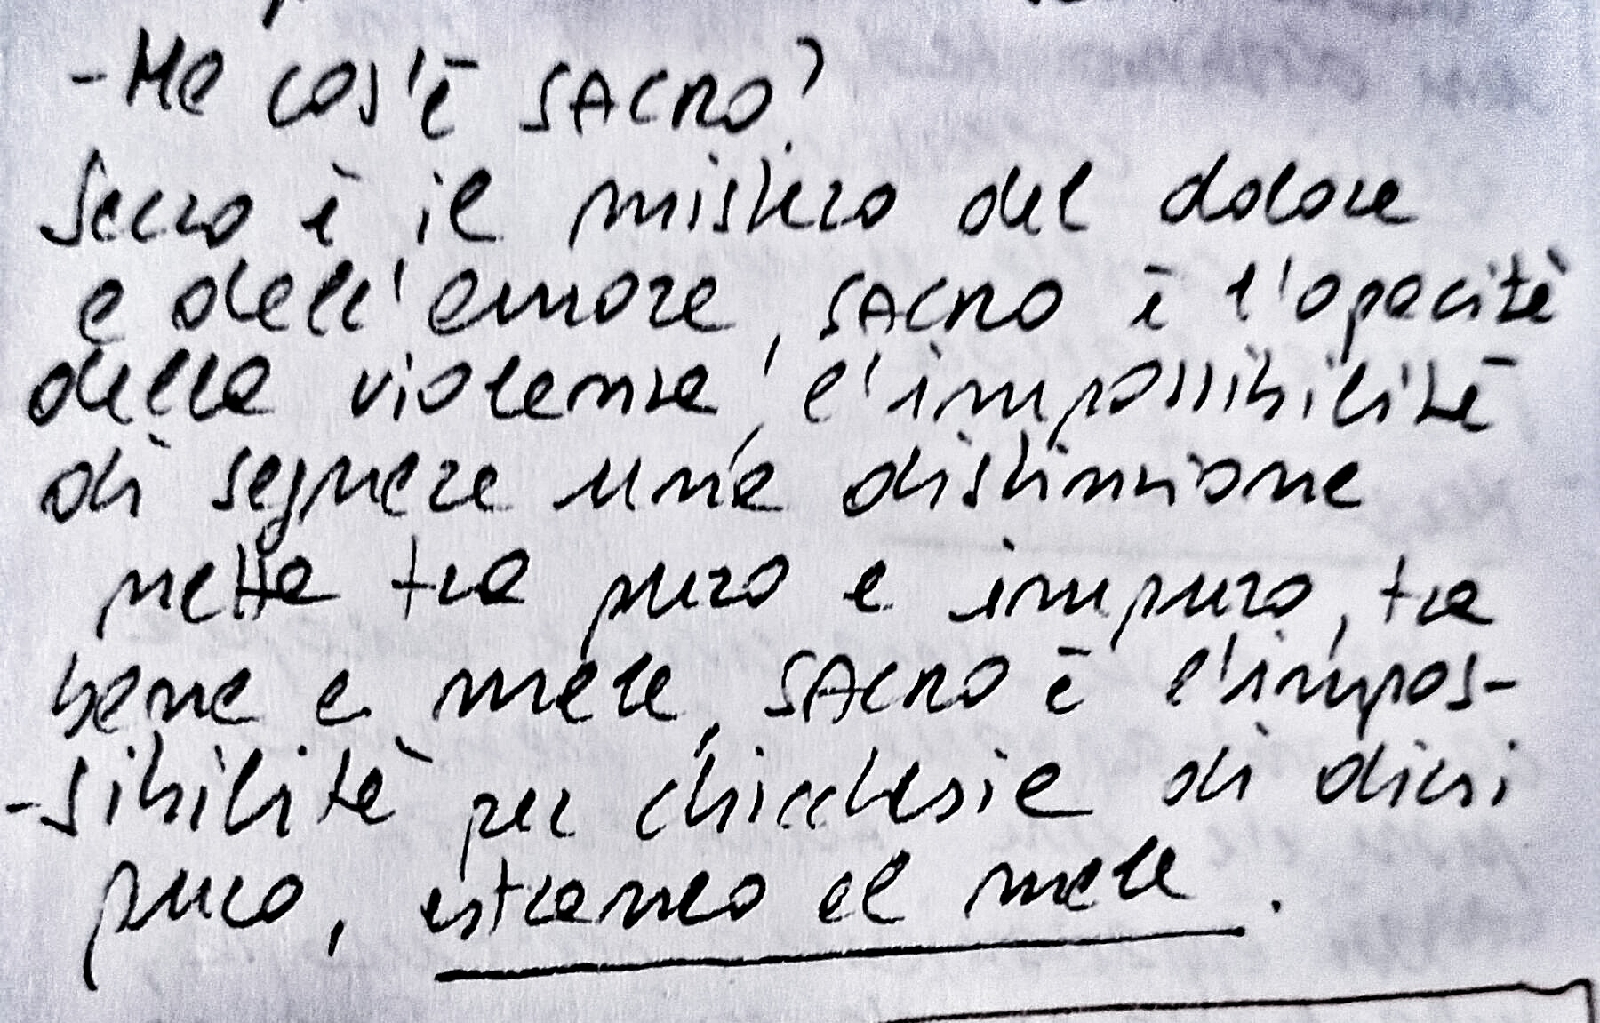 - Ma cos'è SACRO?
Sacro è il mistero del dolore
e dell'amore, SACRO è l'opacità
della violenza, l'impossibilità
di segnare una distinzione
netta tra puro e impuro, tra
bene e male, SACRO è l'impos-
-sibilità per chicchesia di dirsi
puro, estraneo al male.